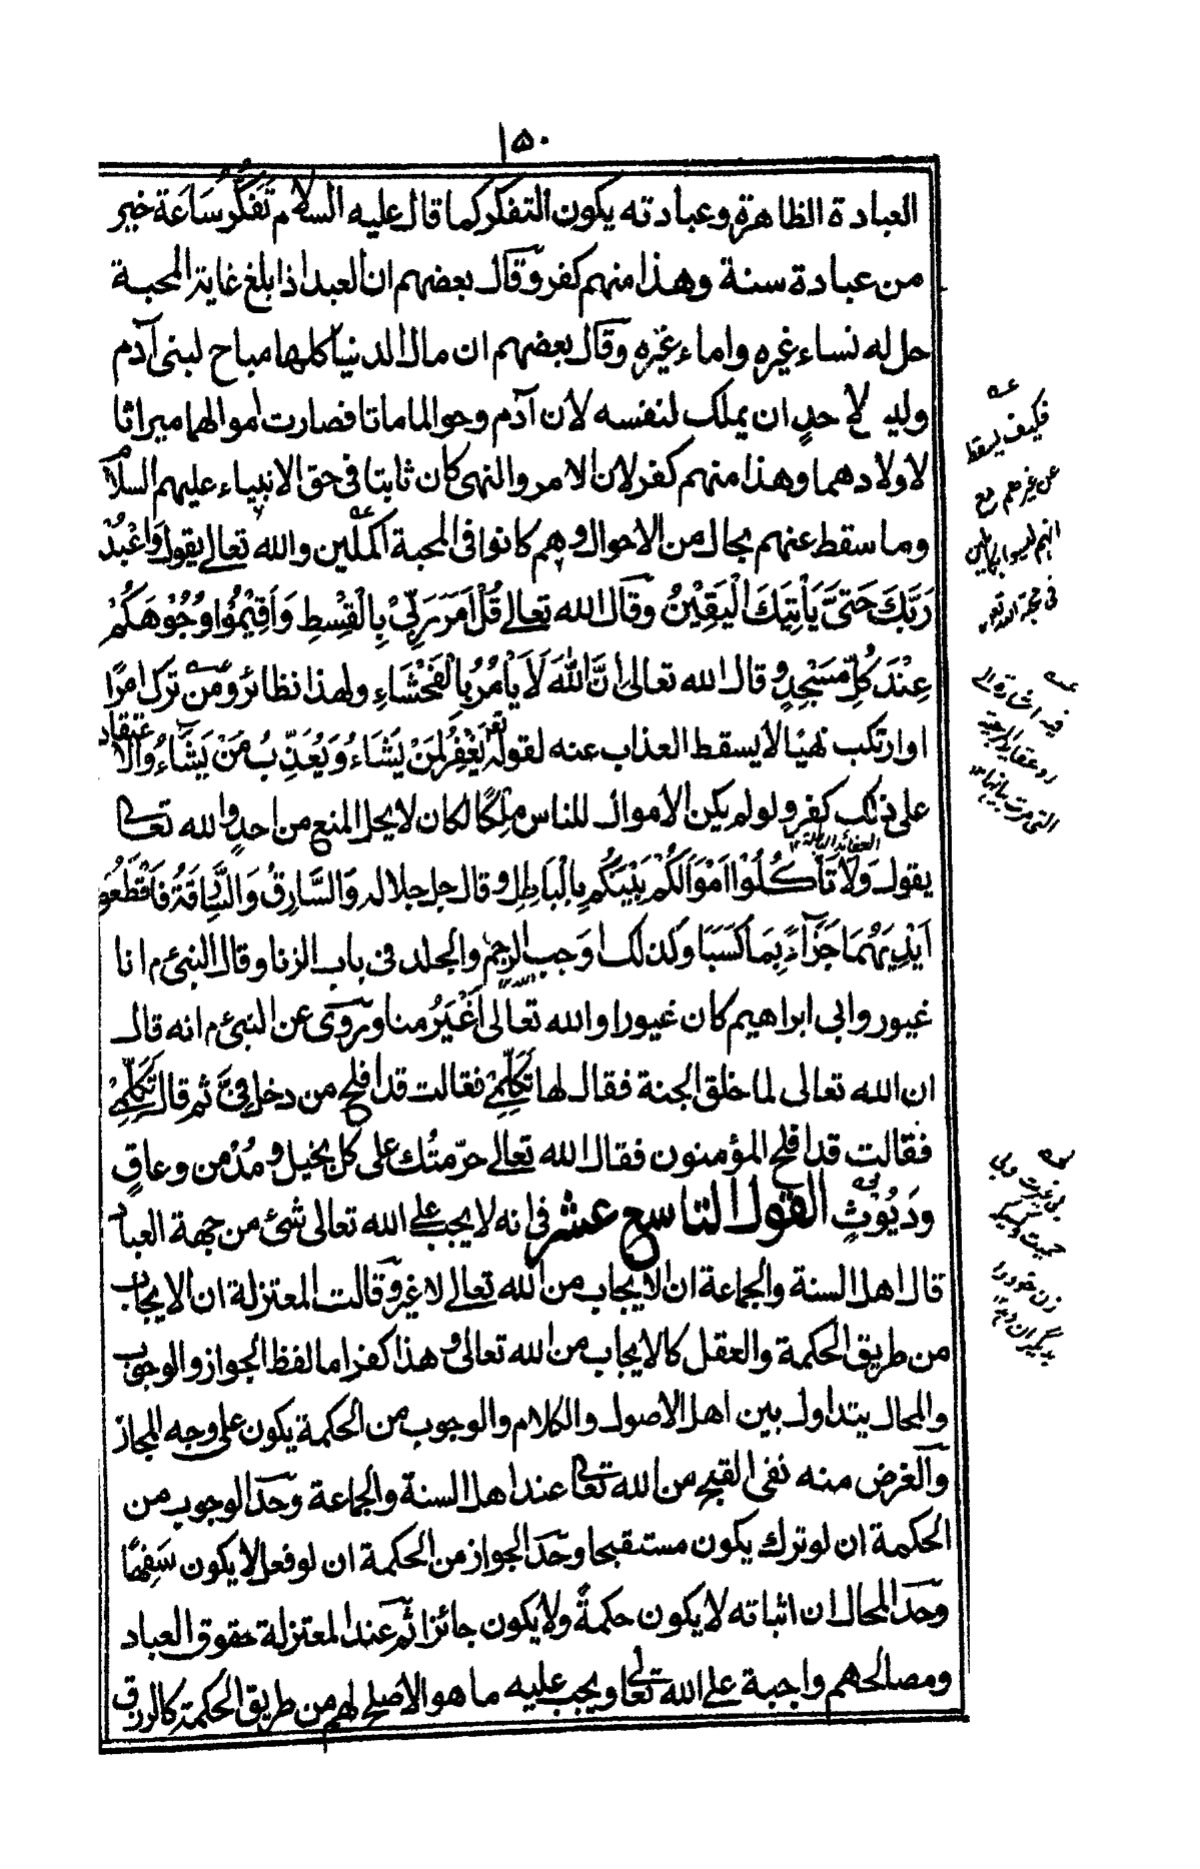 ١٥٠
العبادة الظاهرة وعبادته يكون التفكر كما قال عليه السلام تَفَكُّرُ سَاعَة خير
من عبادة سنة وهذا منهم كفر وقال بعضهم ان العبد اذا بلغ غاية المحبة
حل له نساء غيره واماء غيره وقال بعضهم ان مال الدنيا كلها مباح لبنى آدم
وليس لاحدٍ ان يملك لنفسه لأن آدم وحوا لما ماتا فصارت اموالهما ميراثا
لاولادهما وهذا منهم كفر لان الامر والنهى كان ثابتا فى حق الانبياء عليهم السلام
وما سقط عنهم بحال من الاحوال وهم كانوا فى المحبة اكملين والله تعالى يقول وَاعْبُدْ
رَبَّكَ حَتىَّ يَأْتِيَكَ الْيَقِيْنُ وقال الله تعالى قُلْ اَمَرَ رَبِّىْ بِالْقِسْطِ وَاَقِيْمُوْا وُجُوْهَكُمْ
عِنْدَ كُلِّ مَسْجِدٍ وقال الله تعالى اِنَّ اللّٰهَ لَا يَأْمُرُ بِالْفَحْشَاءِ ولهذا نظائر ومن ترك امرًا
او ارتكب نهيًا لا يسقط العذاب عنه لقوله تعـ يَغْفِرُ لِمَنْ يَشَاءُ وَيُعَذِّبُ مَنْ يَشَاءُ والاعتقاد
على ذلك كفر ولو لم يكن الأموال للناس مِلْكًا لكان لا يحل المنع من احدٍ والله تعالى
يقول وَلَا تَأْكُلُوْا اَمْوَالَكُمْ بَيْنَكُمْ بِالْبَاطِلِ وقال جل جلاله وَالسَّارِقُ وَالسَّارِقَةُ فَاقْطَعُوا
اَيْدِيَهُمَا جَزَآءً بِمَا كَسَبَا وكذلك وَجب الرجم والجلد فى باب الزنا وقال النبىء م انا
غيور وابى ابراهيم كان غيورا والله تعالى اَغْيَرُ منا ويروى عن النبىء م انه قال
ان الله تعالى لما خلق الجنة فقال لها تَكَلَّمِىْ فقالت قد افلح من دخل فِىَّ ثم قال تَكَلَّمِىْ
فقالت قد افلح المؤمنون فقال الله تعالى حرّمتُك على كل بخيل ومُدْمن وعاقٍ
ودَيُوثٍ القول التاسع عشر فى انه لا يجب على الله تعالى شئ من جهة العباد
قال اهل السنة والجماعة ان الايجاب من الله تعالى لا غير وقالت المعتزلة ان الايجاب
من طريق الحكمة والعقل كالايجاب من الله تعالى وهذا كفر اما لفظ الجواز والوجوب
والمحال يتداول بين اهل الاصول والكلام والوجوب من الحكمة يكون على وجه المجاز
والغرض منه نفى القبح من الله تعالى عند اهل السنة والجماعة وحَدّ الوجوب من
الحكمة ان لو ترك يكون مستقبحا وحَدّ الجواز من الحكمة ان لو فعل لا يكون سَفِهًا
وحَدّ المحال ان اثباته لا يكون حكمةً ولا يكون جائزا ثم عند المعتزلة حقوق العباد
ومصالحهم واجبة على الله تعالى ويجب عليه ما هو الاصلح لهم من طريق الحكمة كالرزق
فكيف يسقط
عن غيرهم مع
انهم ليسوا بكاملين
فيه اشارة الى
العقائد الباطلة
بى غيرت وبى
زن خود را